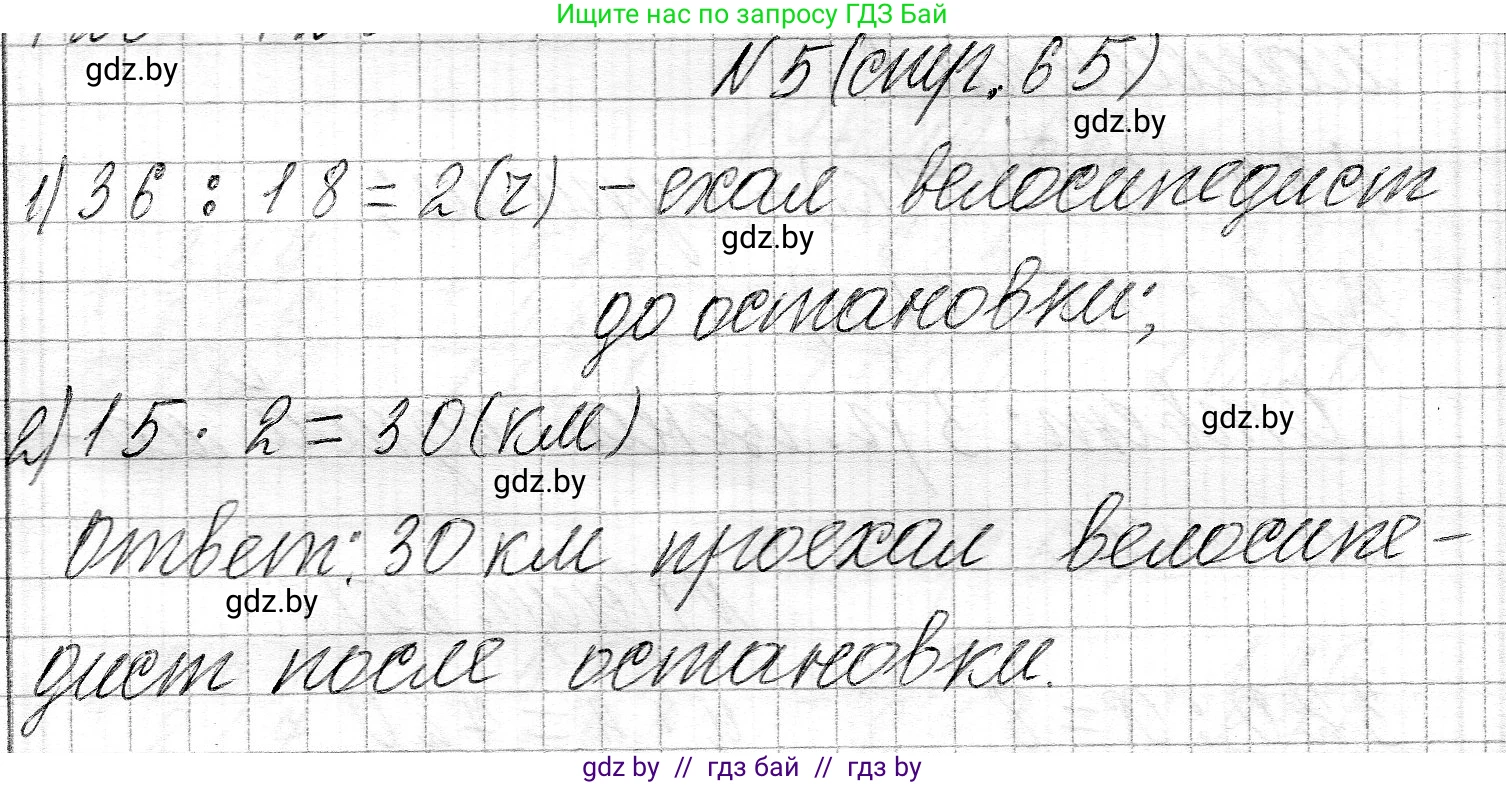 Ищите нас по запросу ГДЗ Бай
gdz.by
N5(стр.65)
gdz.by
1) 36 : 18 = 2(ч) - ехал велосипедист
gdz.by
до остановки;
2) 15 · 2 = 30(км)
gdz.by
gdz.by
Ответ: 30 км проехал велосипе-
gdz.by
дист после остановки.
gdz by // гдз бай // гдз by